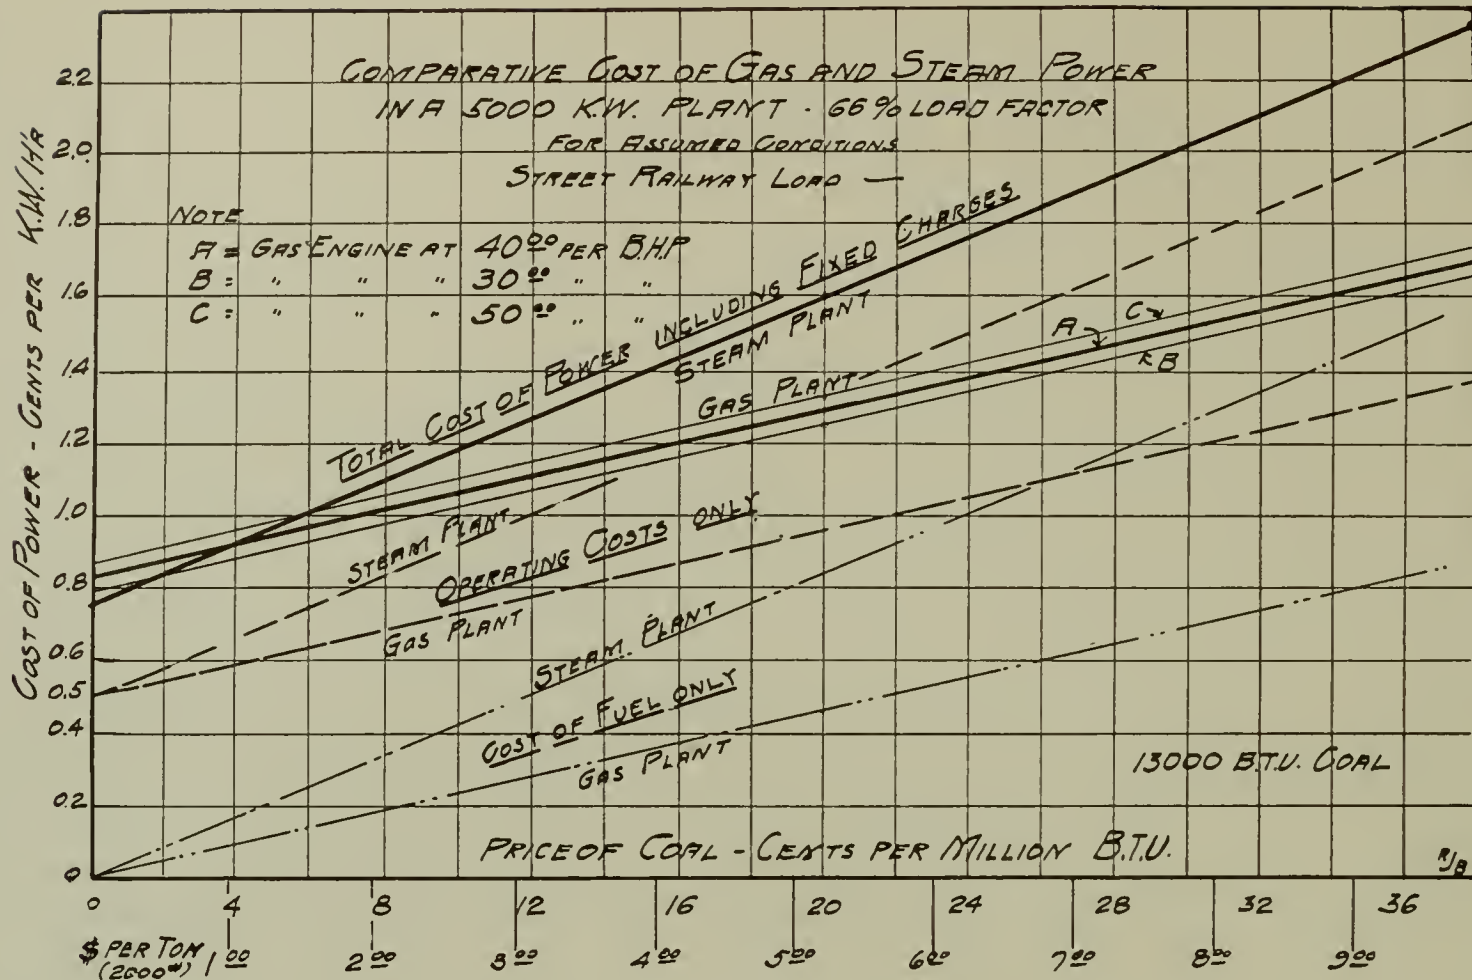 COMPARATIVE COST OF GAS AND STEAM POWER
IN A 5000 K.W. PLANT - 66% LOAD FACTOR
FOR ASSUMED CONDITIONS
STREET RAILWAY LOAD —
NOTE
A = GAS ENGINE AT 40 00 PER B.H.P
B = " " " 30 00 " "
C = " " " 50 00 " "
COST OF POWER - CENTS PER K.W./HR
2.2
2.0
1.8
1.6
1.4
1.2
1.0
0.8
0.6
0.5
0.4
0.2
0
TOTAL COST OF POWER INCLUDING FIXED CHARGES
STEAM PLANT
GAS PLANT
A
C
B
STEAM PLANT
OPERATING COSTS ONLY
GAS PLANT
STEAM PLANT
COST OF FUEL ONLY
GAS PLANT
13000 B.T.U. COAL
PRICE OF COAL - CENTS PER MILLION B.T.U.
0 4 8 12 16 20 24 28 32 36
$ PER TON 1 00 2 00 3 00 4 00 5 00 6 00 7 00 8 00 9 00
(2000#)